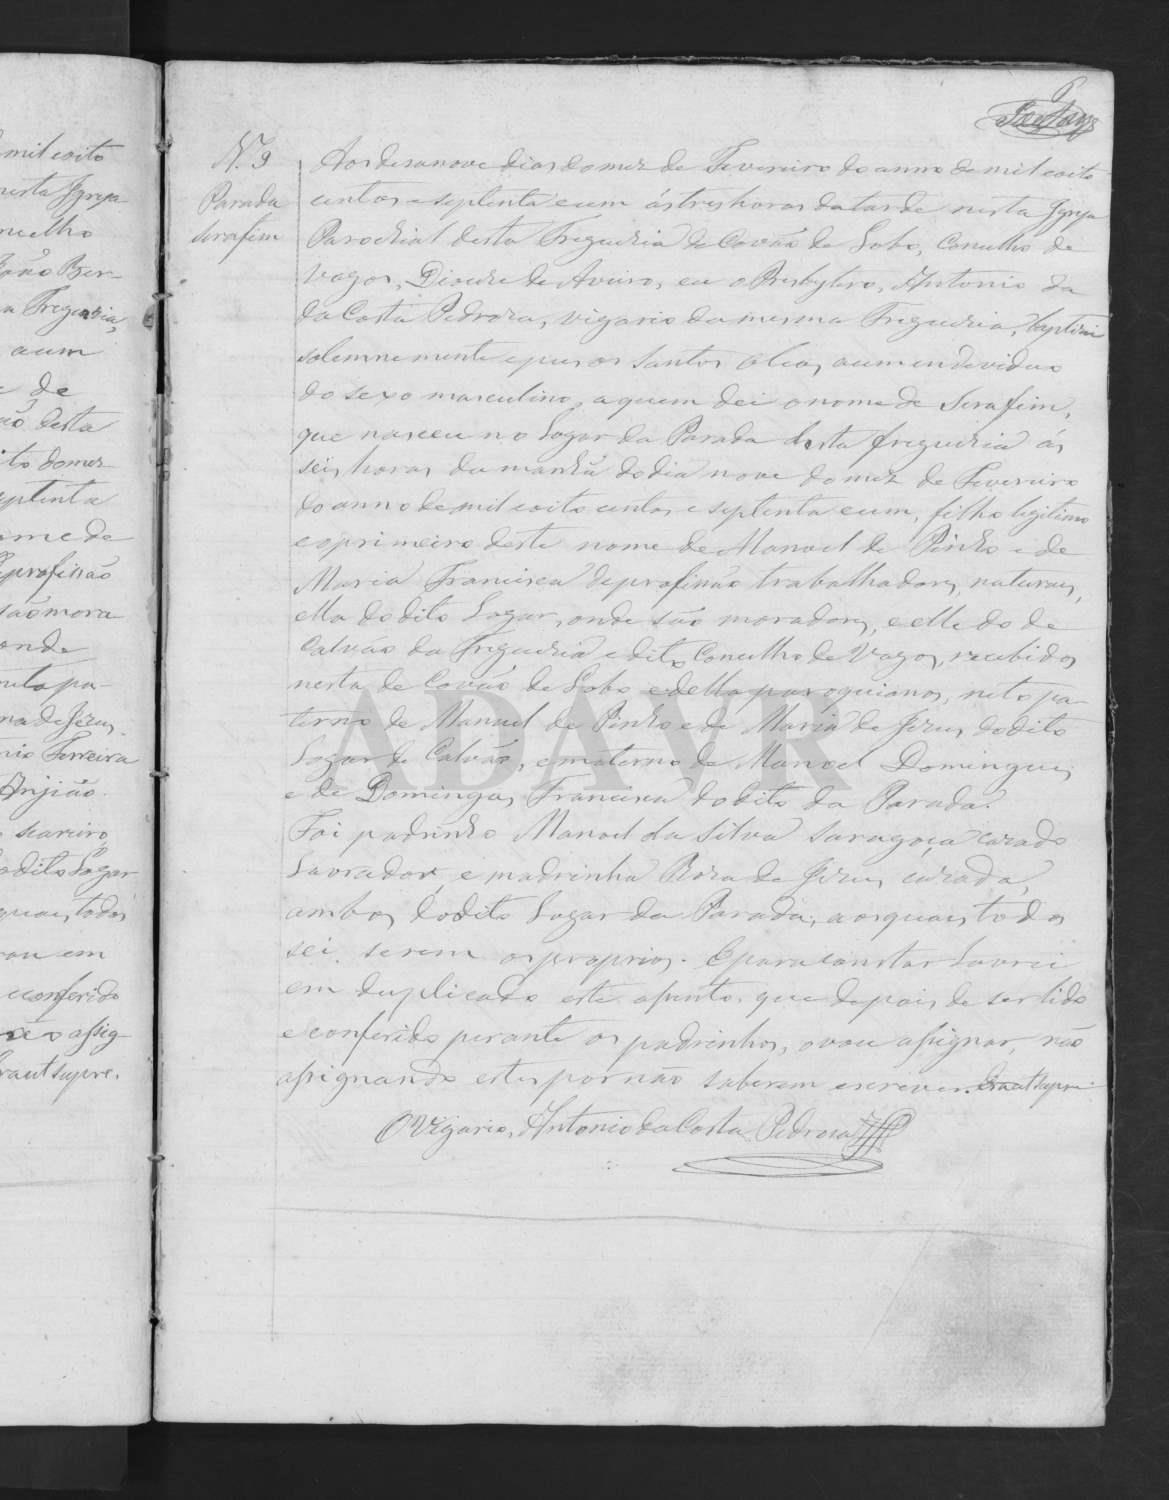 mil eoito
nesta Igreja
ncelho
da Freguezia,
aum
e de
ão desta
ito do mez
eptenta
ome de
profissão
são mora
onde
neto pa-
na de Jezus,
nio Ferreira
Anjião.
o dito Logar
quaes todos
rou em
e conferido
não assig-
Era ut supra.
6
N.º 9
Parada
Serafim
Aos desanove dias do mez de Fevereiro do anno de mil eoito
centos e septenta e um ás tres horas da tarde nesta Igreja
Parochial desta Freguezia de Covão de Lobo, Concelho de
Vagos, Diocese de Aveiro, eu o Presbytero, Antonio da
da Costa Pedroza, vigario da mesma Freguezia, baptizei
solemnemente e puz os Santos oleos, a um endeviduo
do sexo masculino, a quem dei o nome de Serafim,
que nasceu no Logar da Parada desta freguezia ás
seis horas da manhã do dia nove do mez de Fevereiro
do anno de mil eoito centos e septenta e um, filho legitimo
e o primeiro deste nome de Manoel de Pinho e de
Maria Francisca de profissão trabalhadores, naturaes,
ella do dito Logar, onde são moradores, e elle do de
Calvão da Freguezia e dito Concelho de Vagos, recebidos
nesta de Covão de Lobo e della paroquianos, neto pa-
terno de Manuel de Pinho e de Maria de Jezus do dito
Logar de Calvão, e materno de Manoel Domingues
e de Domingas Francisca do dito da Parada.
Foi padrinho Manoel da Silva Saragoça cazado
Lavrador, e madrinha Roza de Jezus cazada,
ambos do dito Logar da Parada, a os quaes todos
sei serem os proprios. E para constar Lavrei
em duplicado este assento, que depois de ser lido
e conferido perante os padrinhos, o vou assignar, não
assignando estes por não saberem escrever. Era ut supra.
O Vigario, Antonio da Costa Pedroza
ADAVR